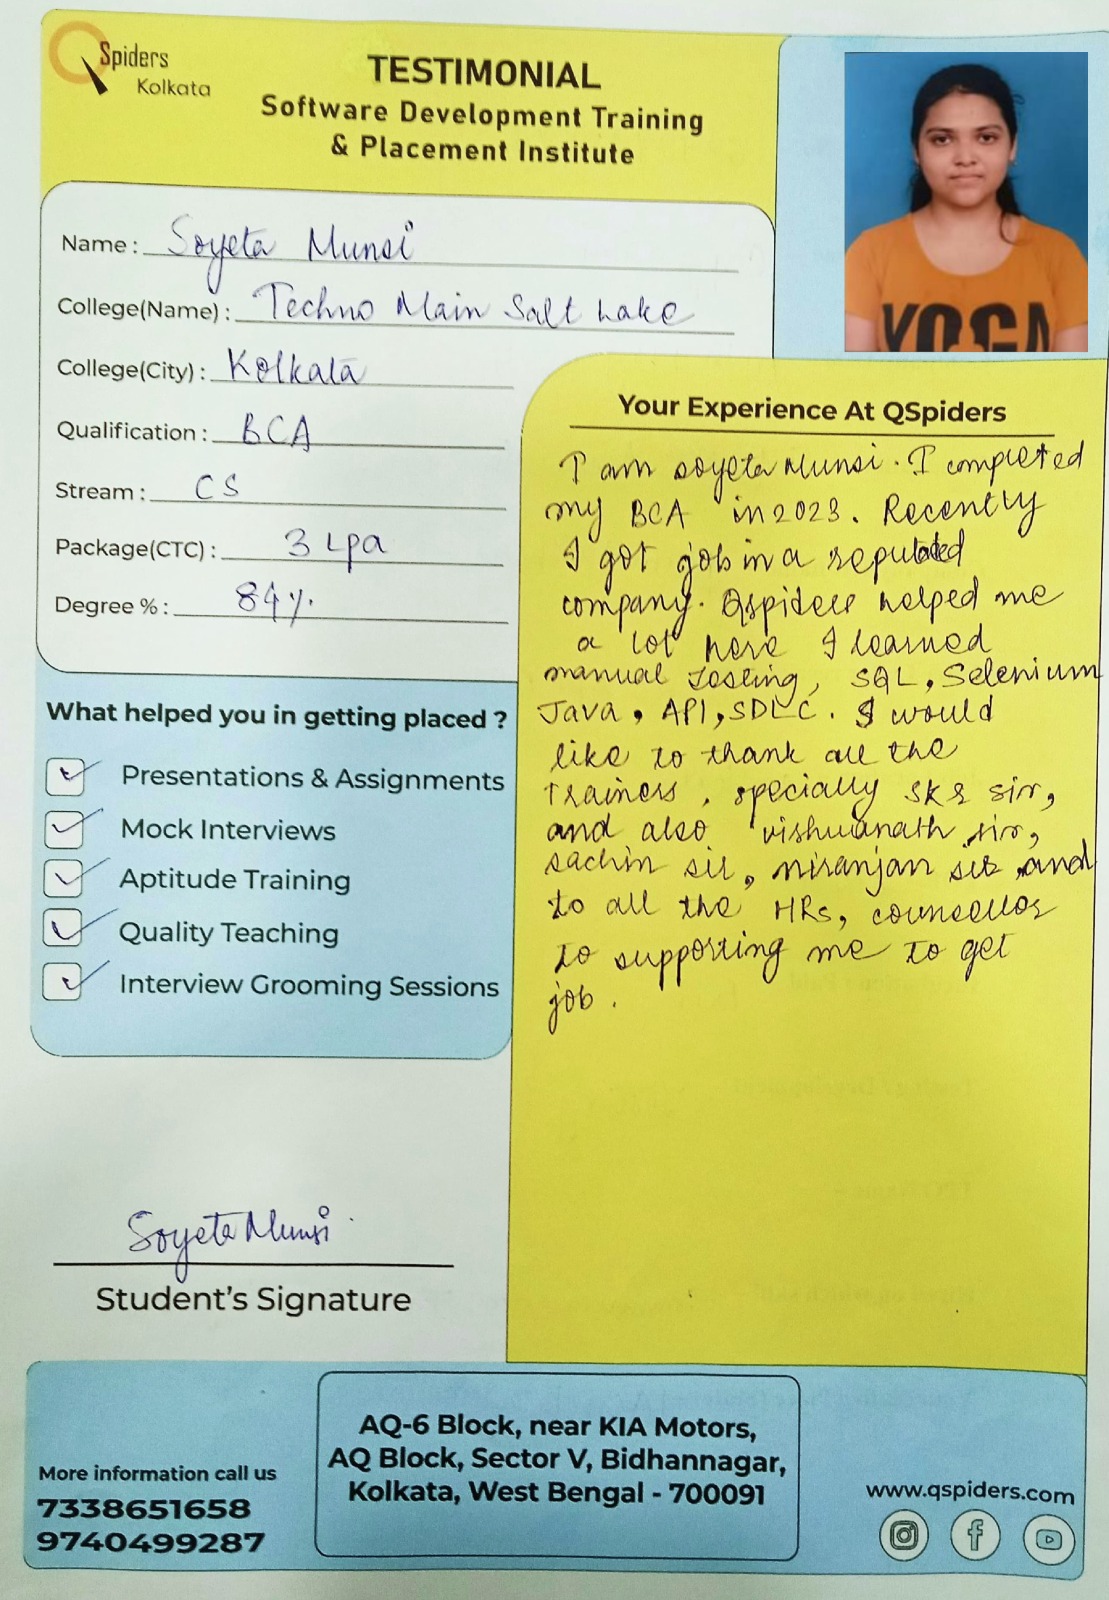 QSpiders
Kolkata
TESTIMONIAL
Software Development Training
& Placement Institute
YOGA
Name : Soyeta Munsi
College(Name) : Techno Main Salt Lake
College(City) : Kolkata
Qualification : BCA
Stream : CS
Package(CTC) : 3 Lpa
Degree % : 84%.
What helped you in getting placed ?
Presentations & Assignments
Mock Interviews
Aptitude Training
Quality Teaching
Interview Grooming Sessions
Your Experience At QSpiders
I am soyeta Munsi. I completed
my BCA in 2023. Recently
I got job in a reputated
company. Qspiders helped me
a lot here I learned
manual testing, SQL, Selenium
Java, API, SDLC. I would
like to thank all the
trainers, specially SKS sir,
and also vishwanath sir,
sachin sir, niranjan sir and
to all the HRs, counsellor
to supporting me to get
job.
Soyeta Munsi
Student's Signature
More information call us
7338651658
9740499287
AQ-6 Block, near KIA Motors,
AQ Block, Sector V, Bidhannagar,
Kolkata, West Bengal - 700091
www.qspiders.com